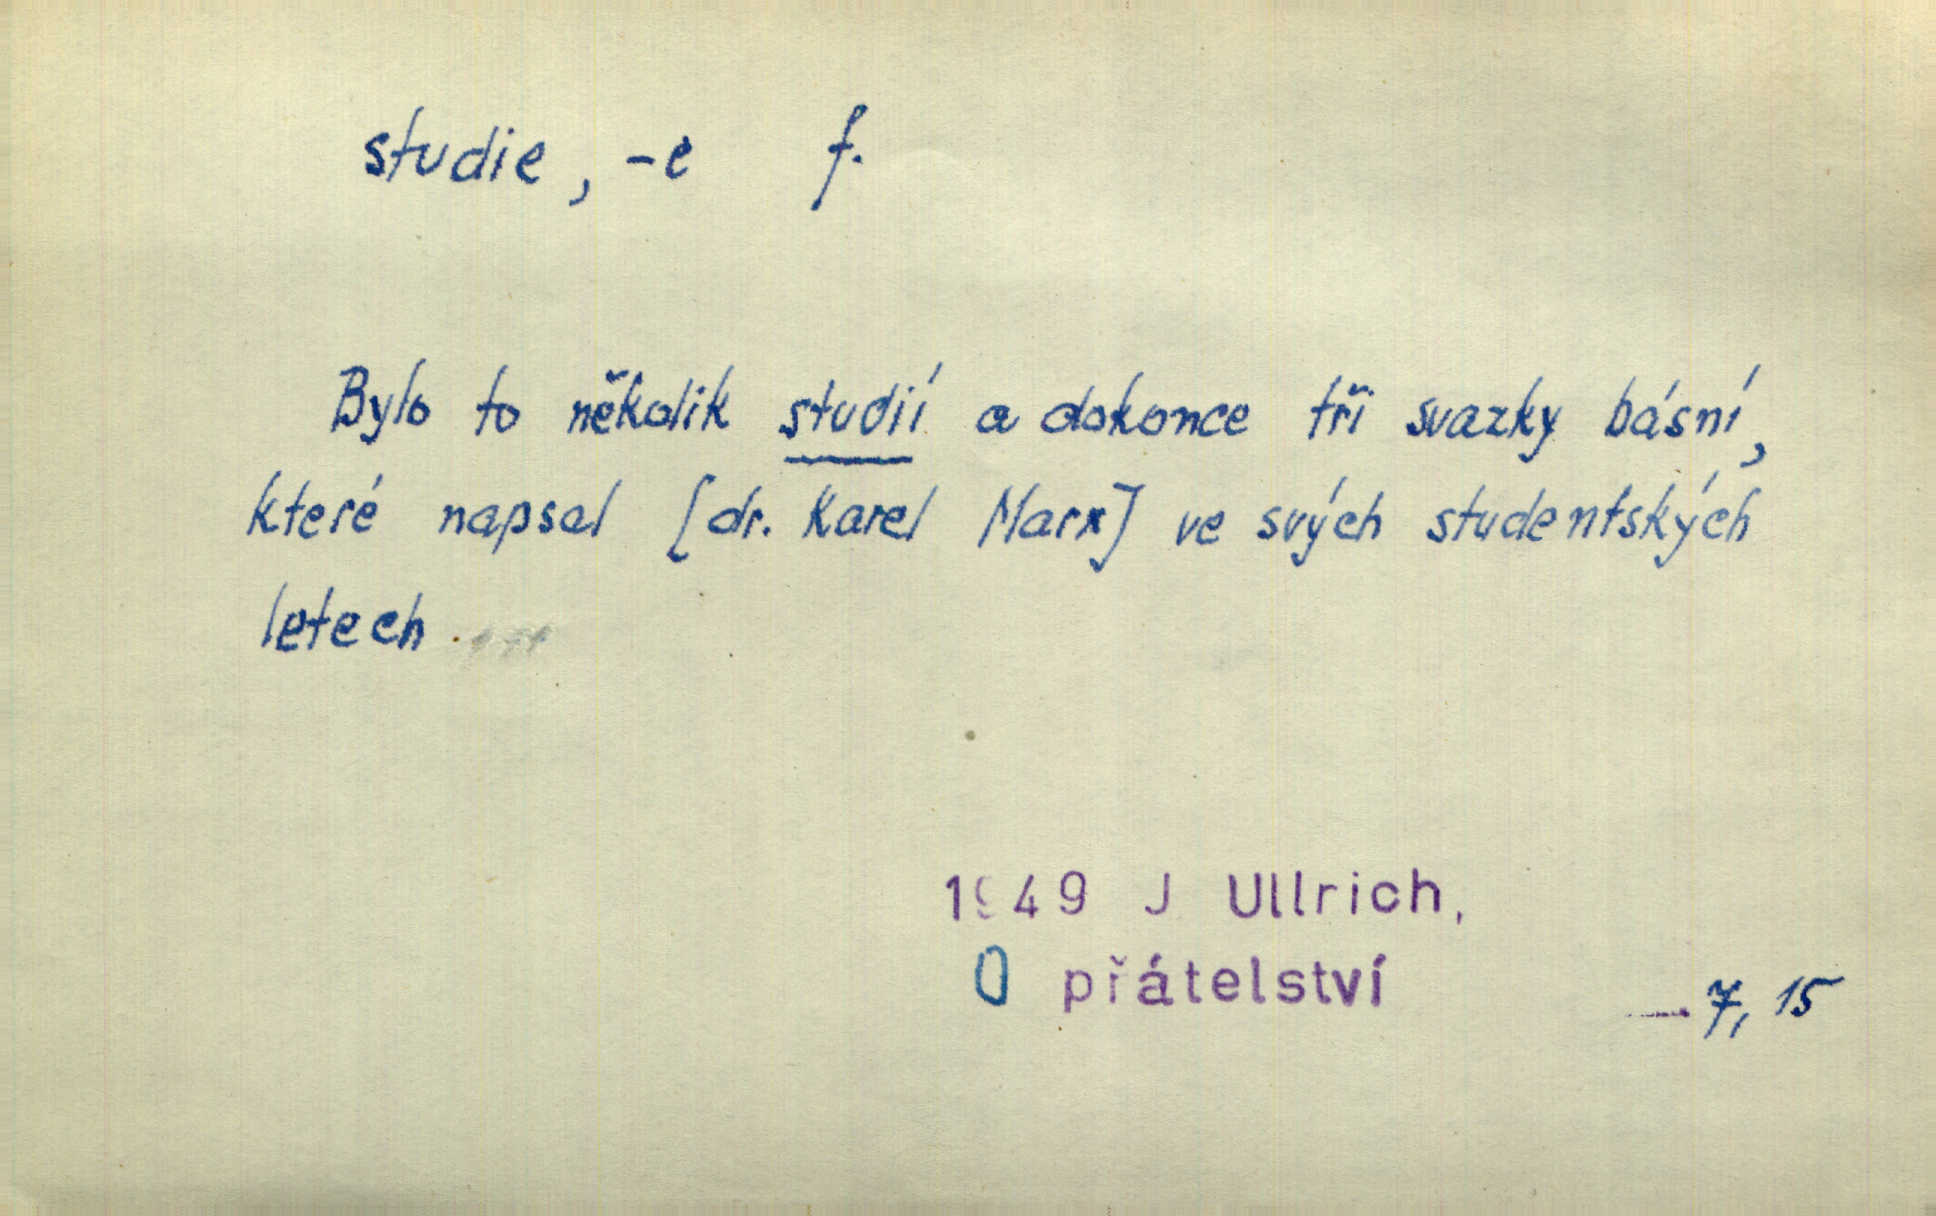 studie, -e f.
Bylo to několik studií a dokonce tři svazky básní,
které napsal [dr. Karel Marx] ve svých studentských
letech.
1949 J Ullrich,
O přátelství
7, 15